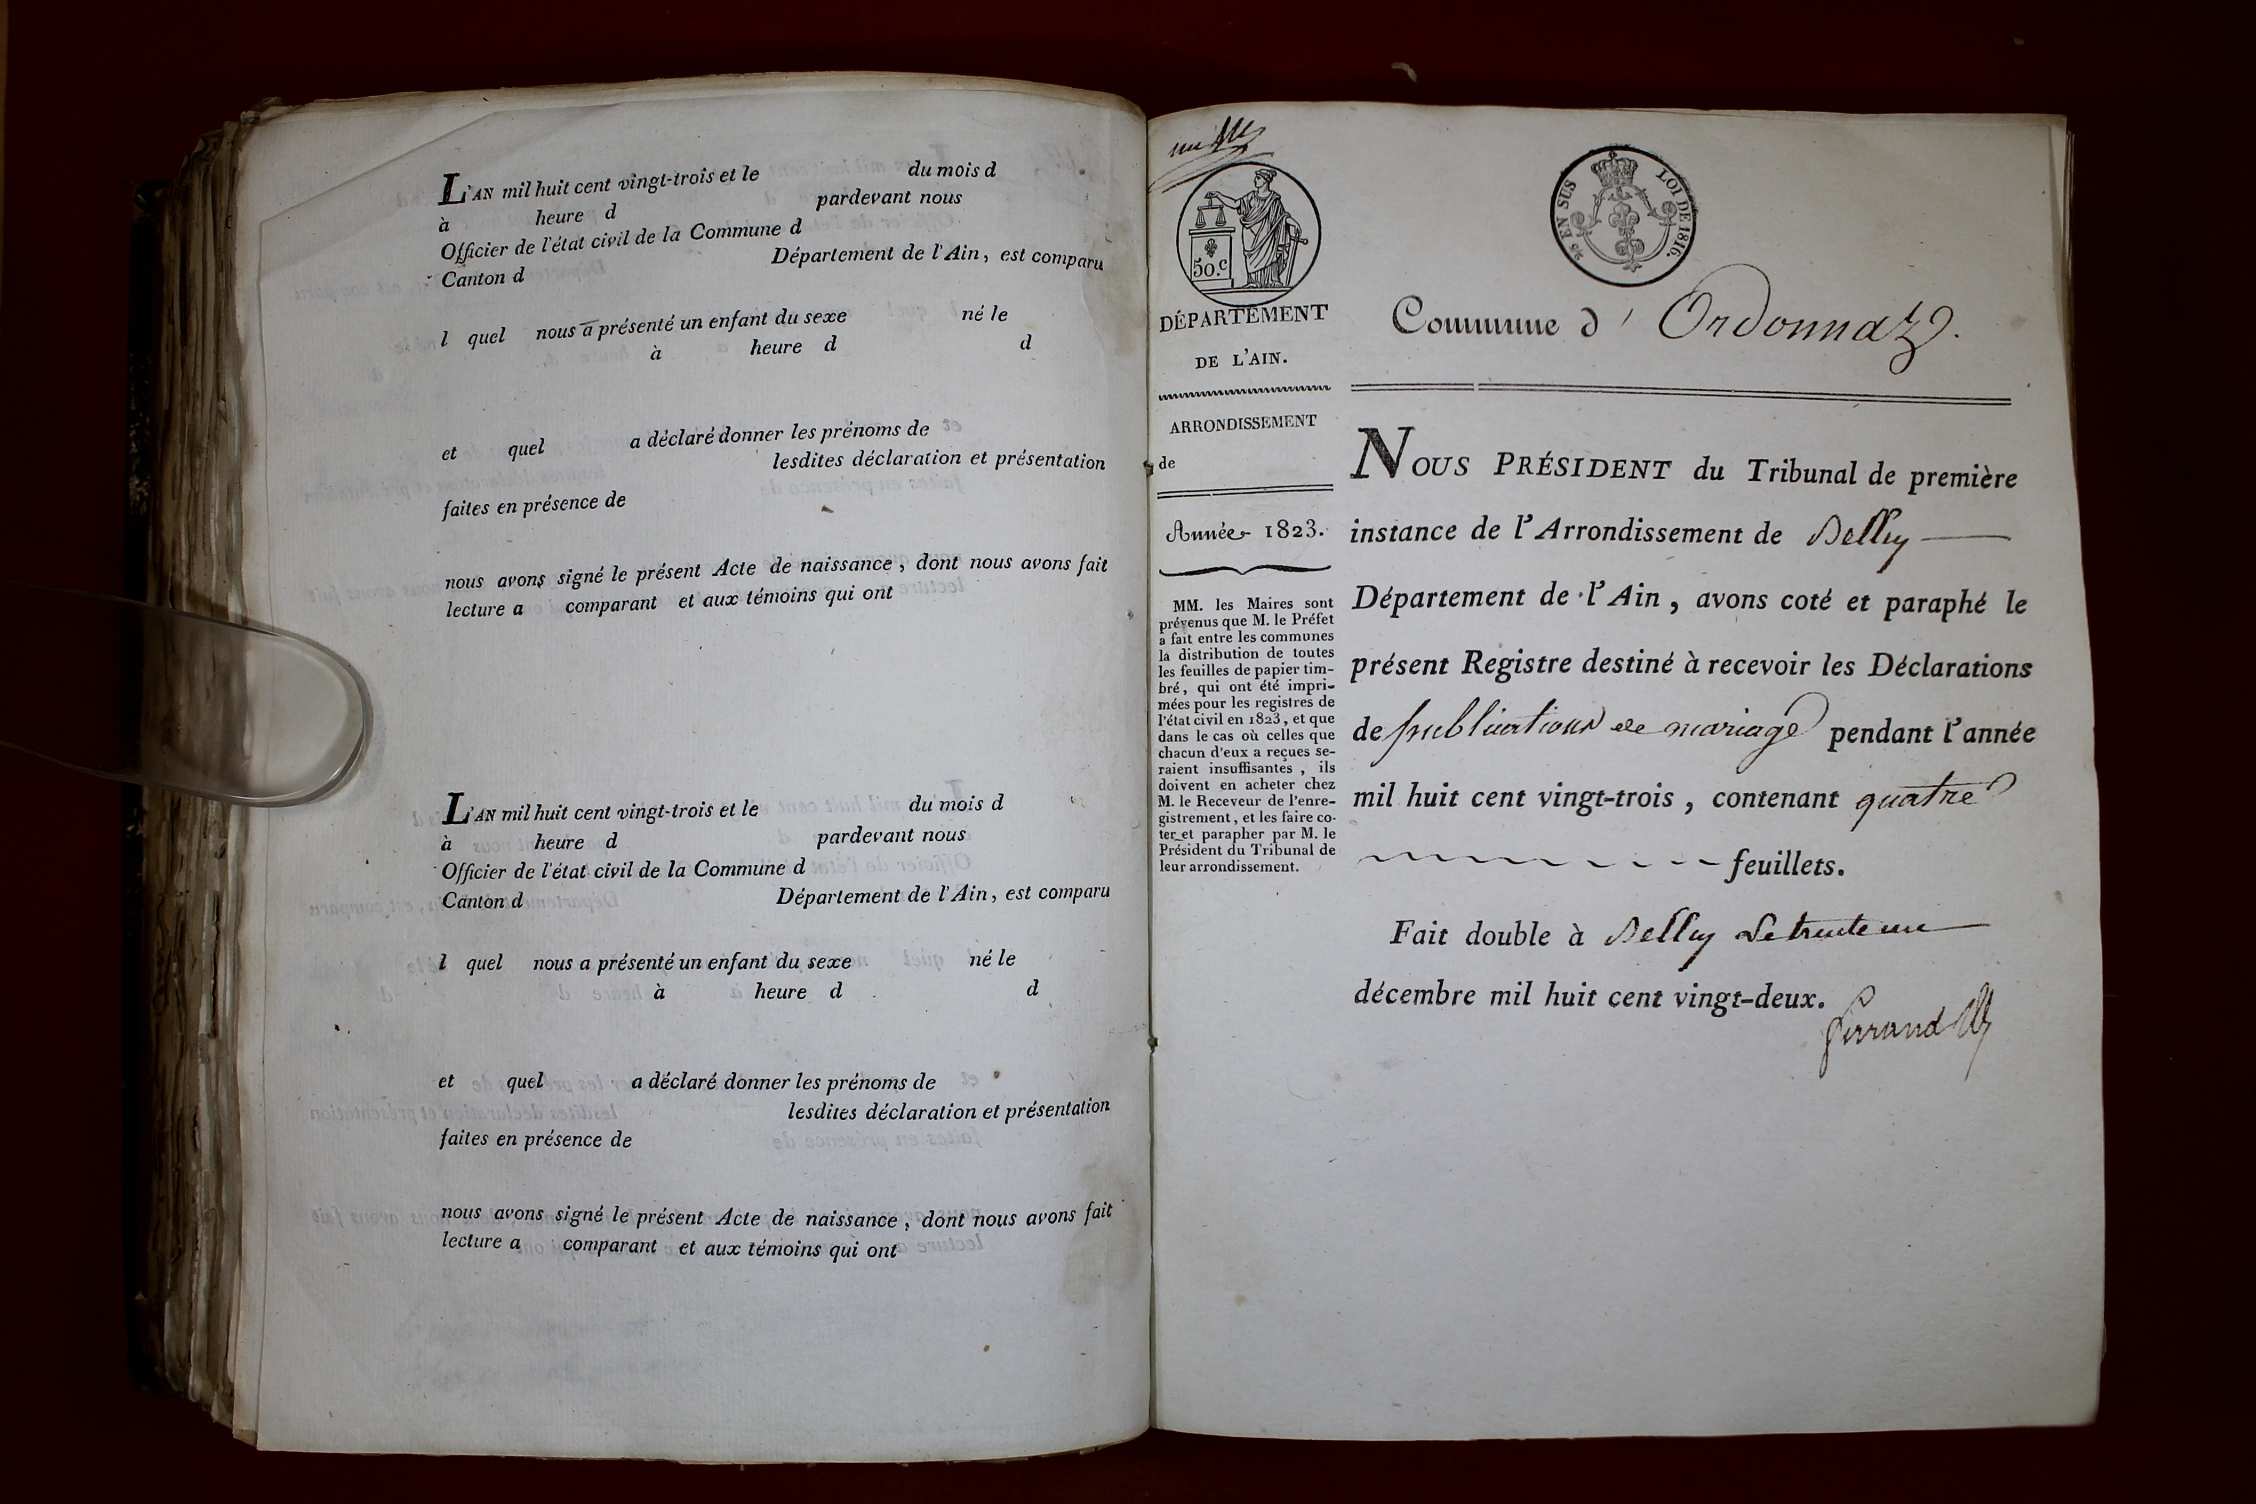 L'AN mil huit cent vingt-trois et le du mois d
à heure d pardevant nous
Officier de l'état civil de la Commune d
Canton d Département de l'Ain, est comparu
l quel nous a présenté un enfant du sexe né le
à heure d d
et quel a déclaré donner les prénoms de
lesdites déclaration et présentation
faites en présence de
nous avons signé le présent Acte de naissance, dont nous avons fait
lecture a comparant et aux témoins qui ont
L'AN mil huit cent vingt-trois et le du mois d
à heure d pardevant nous
Officier de l'état civil de la Commune d
Canton d Département de l'Ain, est comparu
l quel nous a présenté un enfant du sexe né le
à heure d d
et quel a déclaré donner les prénoms de
lesdites déclaration et présentation
faites en présence de
nous avons signé le présent Acte de naissance, dont nous avons fait
lecture a comparant et aux témoins qui ont
un
50.c
DÉPARTEMENT
DE L'AIN.
ARRONDISSEMENT
de
Année 1823.
MM. les Maires sont
prévenus que M. le Préfet
a fait entre les communes
la distribution de toutes
les feuilles de papier tim-
bré, qui ont été impri-
mées pour les registres de
l'état civil en 1823, et que
dans le cas où celles que
chacun d'eux a reçues se-
raient insuffisantes, ils
doivent en acheter chez
M. le Receveur de l'enre-
gistrement, et les faire co-
ter et parapher par M. le
Président du Tribunal de
leur arrondissement.
EN SUS LOI DE 1816.
Commune d' Ordonnaz.
NOUS PRÉSIDENT du Tribunal de première
instance de l'Arrondissement de Belley
Département de l'Ain, avons coté et paraphé le
présent Registre destiné à recevoir les Déclarations
de publications de mariage pendant l'année
mil huit cent vingt-trois, contenant quatre
feuillets.
Fait double à Belley le trente un
décembre mil huit cent vingt-deux.